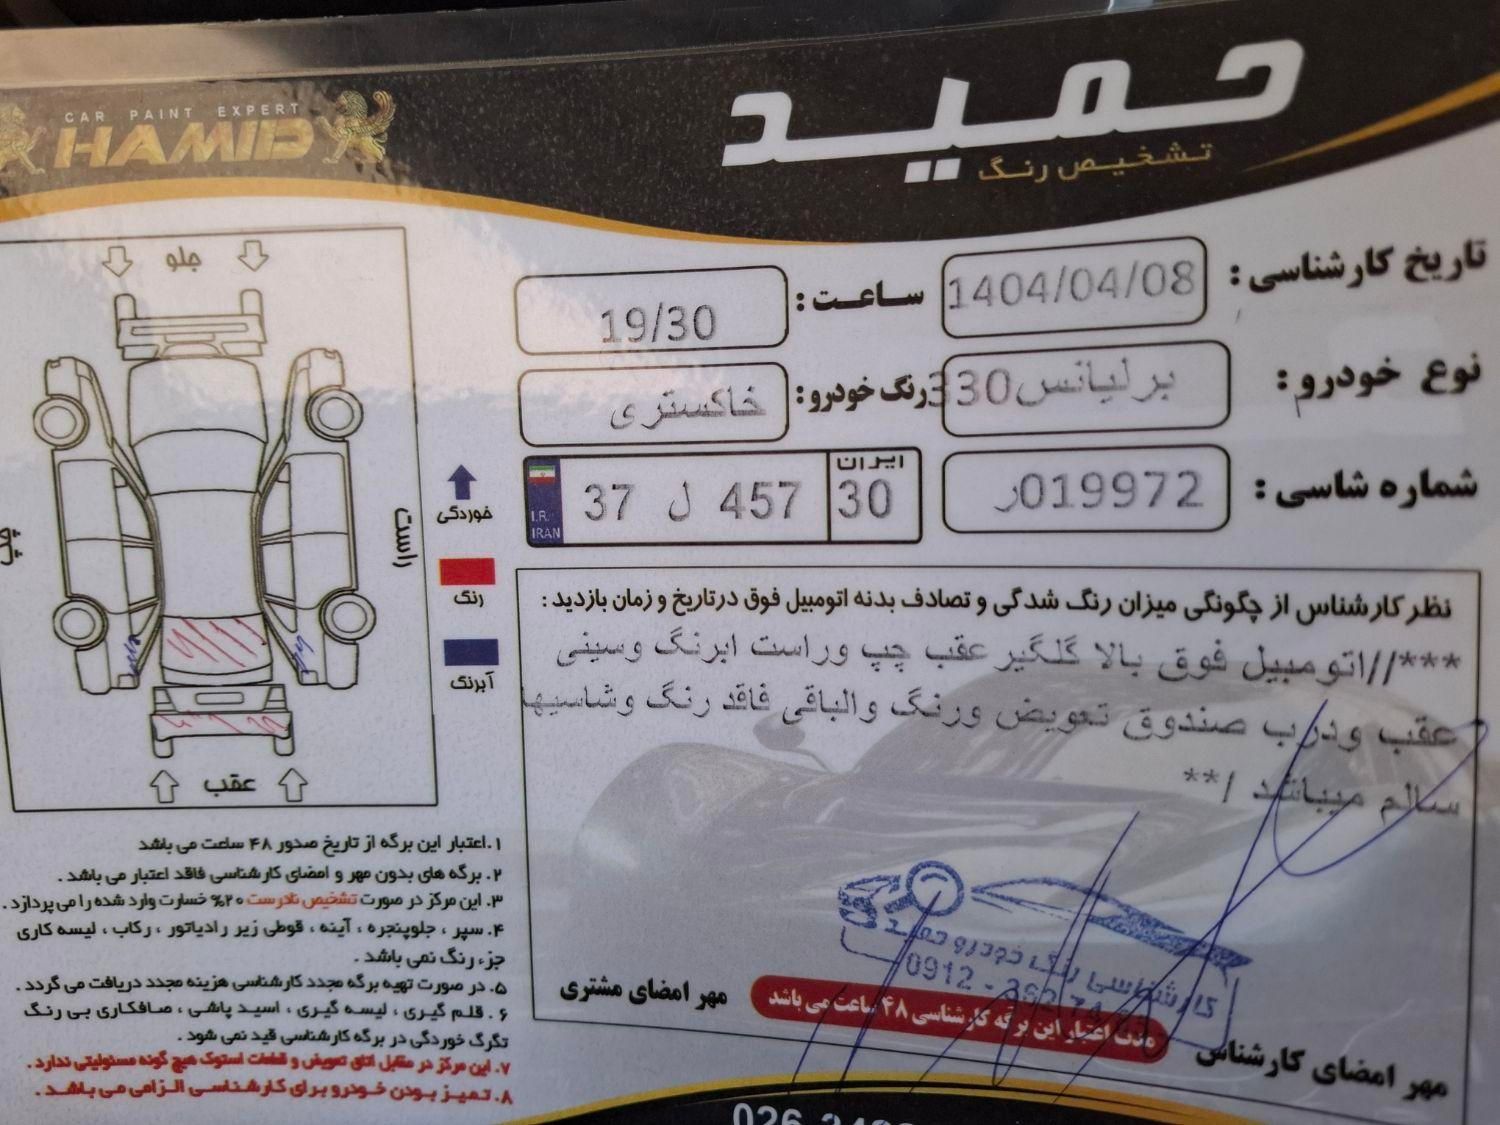 CAR PAINT EXPERT
HAMID
حمید
تشخیص رنگ
تاریخ کارشناسی : 1404/04/08
ساعت : 19/30
نوع خودرو : برلیانس330
رنگ خودرو : خاکستری
شماره شاسی : 019972ر
ایران
37 ل 457 30
I.R.
IRAN
جلو
راست
چپ
عقب
خوردگی
رنگ
آبرنگ
نظر کارشناس از چگونگی میزان رنگ شدگی و تصادف بدنه اتومبیل فوق درتاریخ و زمان بازدید :
***//اتومبیل فوق بالا گلگیر عقب چپ وراست ابرنگ وسینی
عقب ودرب صندوق تعویض ورنگ والباقی فاقد رنگ وشاسیها
سالم میباشد /**
۱.اعتبار این برگه از تاریخ صدور ۴۸ ساعت می باشد
۲. برگه های بدون مهر و امضای کارشناسی فاقد اعتبار می باشد .
۳. این مرکز در صورت تشخیص نادرست ۲۰% خسارت وارد شده را می پردازد .
۴. سپر ، جلوپنجره ، آینه ، قوطی زیر رادیاتور ، رکاب ، لیسه کاری
جزء رنگ نمی باشد .
۵. در صورت تهیه برگه مجدد کارشناسی هزینه مجدد دریافت می گردد .
۶ . قلم گیری ، لیسه گیری ، اسید پاشی ، صافکاری بی رنگ
تگرگ خوردگی در برگه کارشناسی قید نمی شود .
۷. این مرکز در مقابل اتاق تعویض و قطعات استوک هیچ گونه مسئولیتی ندارد .
۸. تمیز بودن خودرو برای کارشناسی الزامی می باشد .
کارشناسی رنگ خودرو حمید
0912 -
مدت اعتبار این برگه کارشناسی ۴۸ ساعت می باشد
مهر امضای مشتری
مهر امضای کارشناس
026